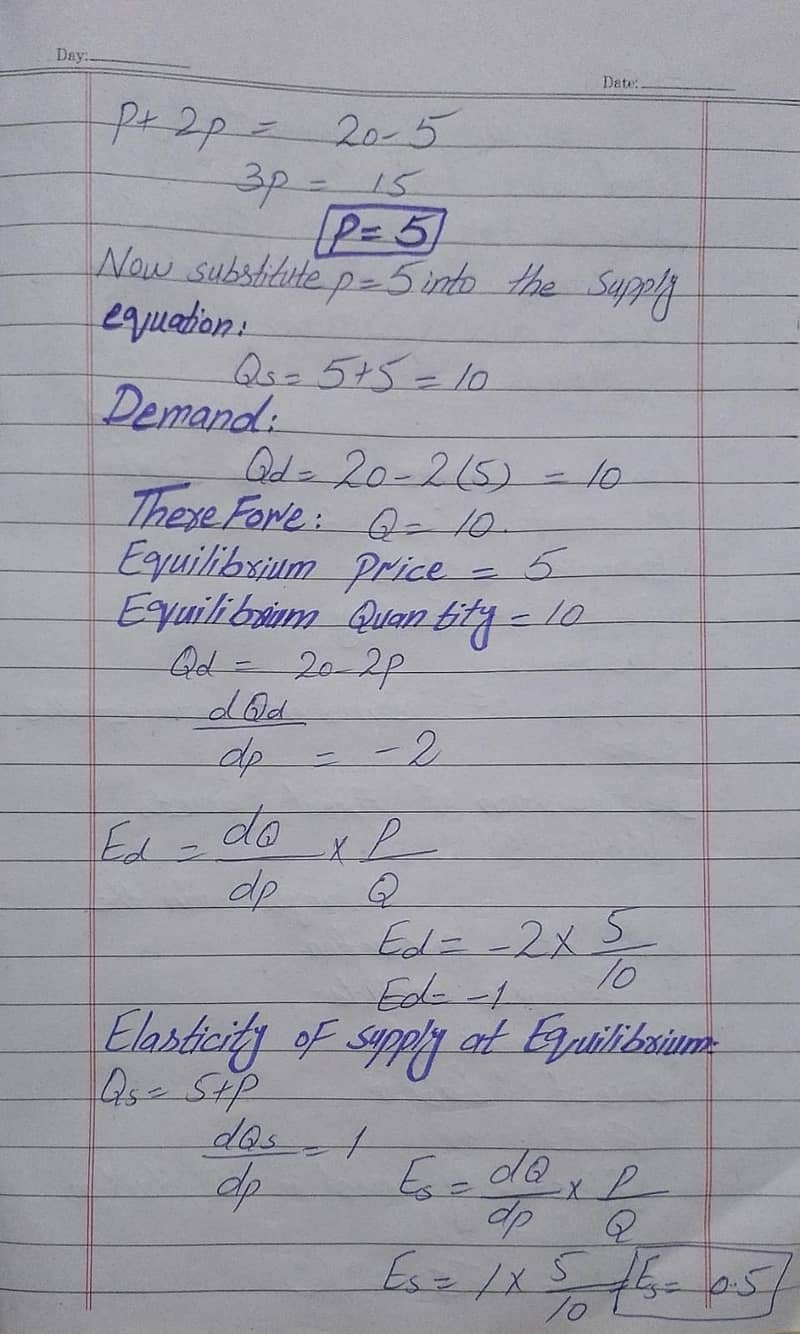 Day:
Date:
P+ 2p = 20-5
3p = 15
P= 5
Now substitute p=5 into the supply
equation:
Qs= 5+5=10
Demand:
Qd= 20-2(5) = 10
ThereFore: Q= 10.
Equilibrium Price = 5
Equilibrium Quantity = 10
Qd = 20-2p
dQd
dp = -2
Ed = dQ/dp x P/Q
Ed= -2 x 5/10
Ed= -1
Elasticity of supply at Equilibrium-
Qs= 5+P
dQs/dp = 1
Es = dQ/dp x P/Q
Es = 1 x 5/10 = Es= 0.5